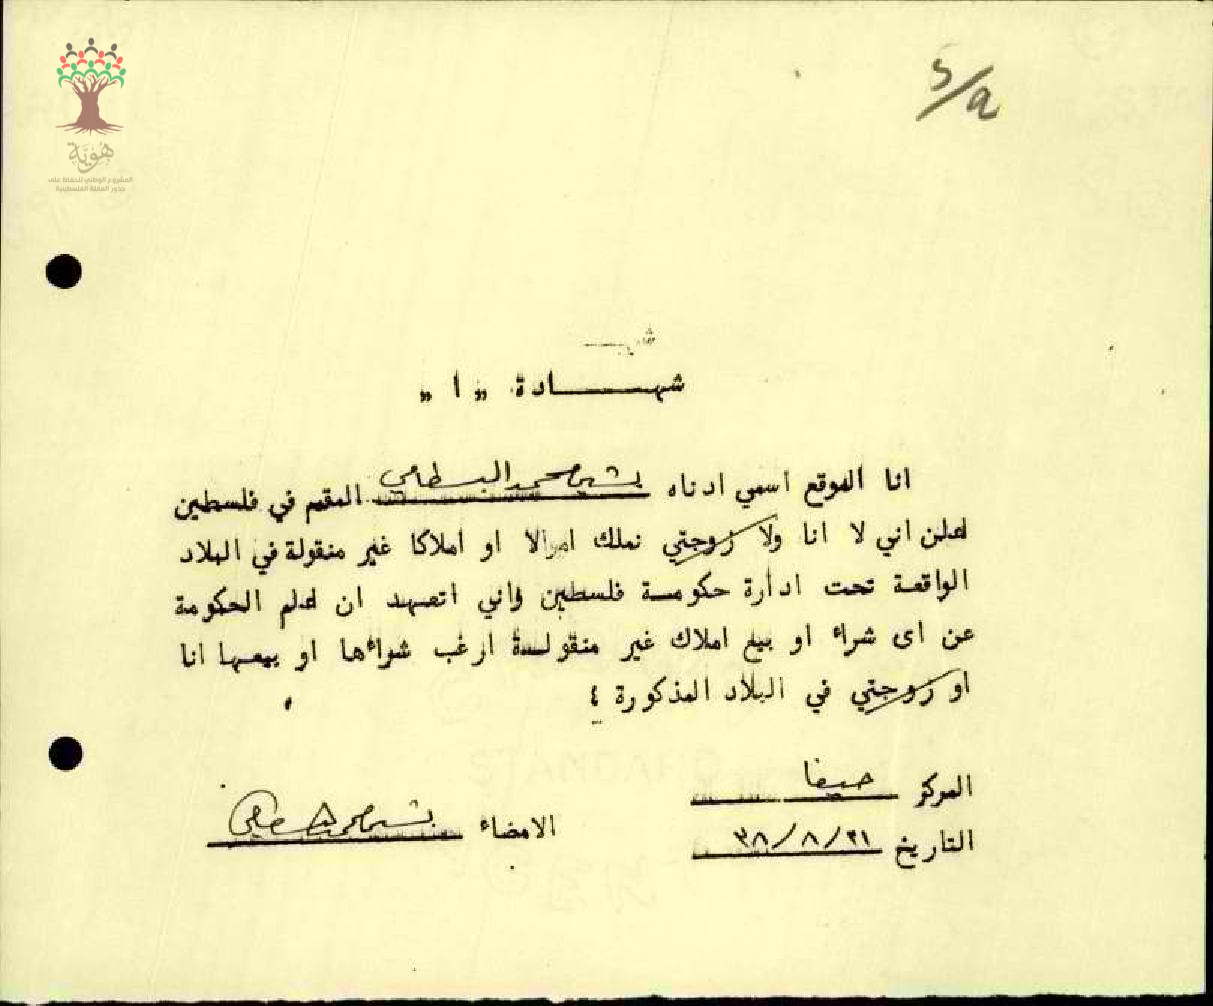 5/a
هوية
المشروع الوطني للحفاظ على
جذور العائلة الفلسطينية
شهـــــــادة „ ا „
انا الموقع اسمي ادناه بشير محمد البسطامي المقيم في فلسطين
اعلن اني لا انا ولا زوجتي نملك اموالا او املاكا غير منقولة في البلاد
الواقعة تحت ادارة حكومة فلسطين واني اتعهد ان اعلم الحكومة
عن اى شراء او بيع املاك غير منقولة ارغب شراءها او بيعها انا
او زوجتي في البلاد المذكورة ؛
المركز حيفا
التاريخ ٣٨/٨/٢١
الامضاء بشير محمد البسطامي